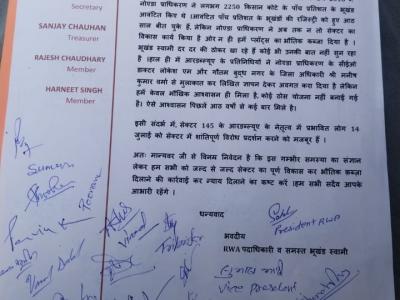 Secretary
SANJAY CHAUHAN
Treasurer
RAJESH CHAUDHARY
Member
HARNEET SINGH
Member
नोएडा प्राधिकरण ने लगभग 2250 किसान कोटे के पाँच प्रतिशत के भूखंड
आवंटित किए थे । आवंटित पाँच प्रतिशत के भूखंडों की रजिस्ट्री को हुए आठ
साल बीत चुके हैं, लेकिन नोएडा प्राधिकरण ने अब तक न तो सेक्टर का
विकास कार्य किया है और न ही हमें प्लॉट्स का भौतिक कब्जा दिया है ।
भूखंड स्वामी दर दर की ठोकर खा रहे हैं कोई भी उनकी बात नहीं सुन रहा
है । हाल ही में आरडब्ल्यूए के प्रतिनिधियों ने नोएडा प्राधिकरण के सीईओ
डाक्टर लोकेश एम और गौतम बुद्ध नगर के जिला अधिकारी श्री मनीष
कुमार वर्मा से मुलाकात कर लिखित ज्ञापन देकर अवगत करा दिया है लेकिन
हमें केवल मौखिक आश्वासन ही मिला है, कोई ठोस योजना नहीं बनाई गई
है। ऐसे आश्वासन पिछले आठ वर्षों से कई बार मिले है।
इसी संदर्भ में, सेक्टर 145 के आरडब्ल्यूए के नेतृत्व में प्रभावित लोग 14
जुलाई को सेक्टर में शांतिपूर्ण विरोध प्रदर्शन करने को मजबूर हैं ।
अतः मान्यवर जी से विनम्र निवेदन है कि इस गम्भीर समस्या का संज्ञान
लेकर हम सभी को जल्द से जल्द सेक्टर का पूर्ण विकास कर भौतिक कब्ज़ा
दिलाने की कार्रवाई कर न्याय दिलाने का कष्ट करें ।हम सभी सदैव आपके
आभारी रहेंगे ।
धन्यवाद
भवदीय
President RWA
RWA पदाधिकारी व समस्त भूखंड स्वामी
Vice President
Suman
Poonam
Vinod